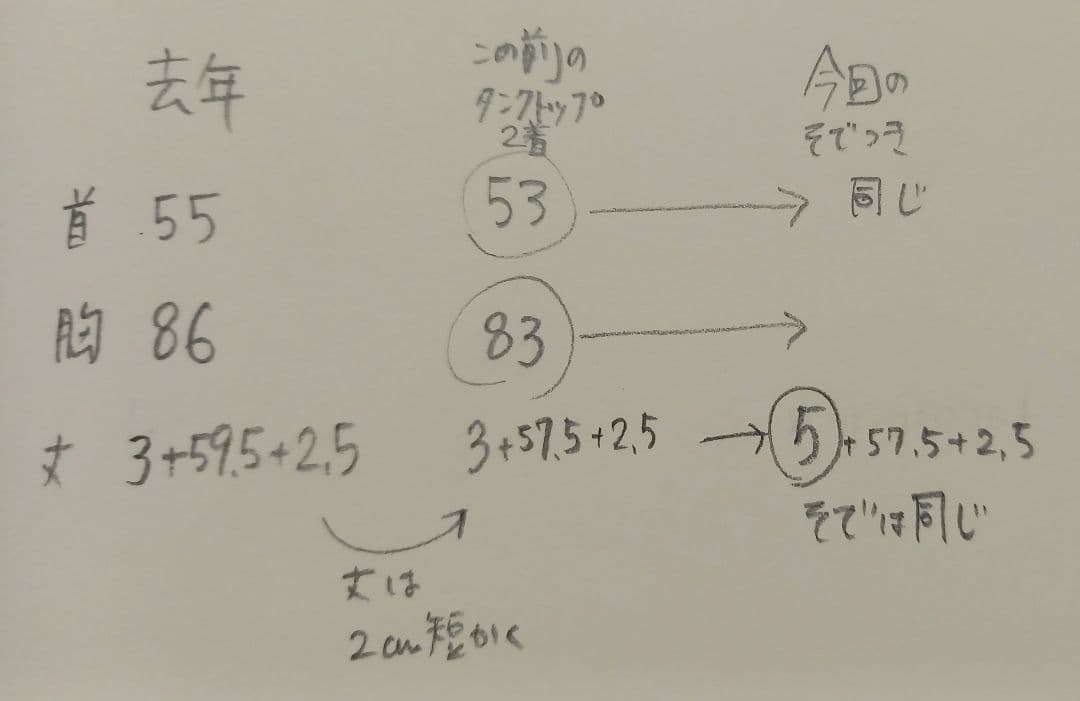 去年
この前の
タンクトップ
2着
今回の
そでつき
首 55
53
同じ
胸 86
83
丈 3+59.5+2.5
3+57.5+2.5
5+57.5+2.5
そでは同じ
丈は
2cm短かく